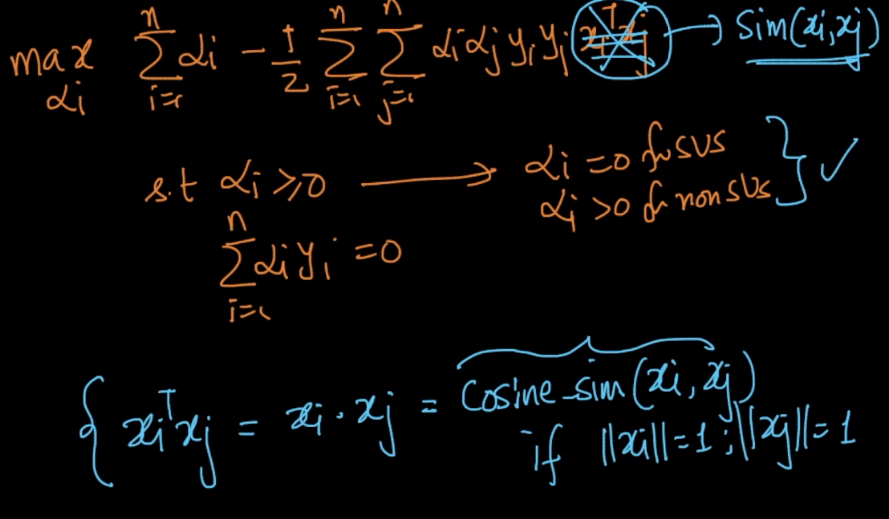 max αi Σ i=1 n αi - 1/2 Σ i=1 n Σ j=1 n αi αj yi yj xiᵀxj → Sim(xi, xj)
s.t αi ≥ 0 → αi = 0 for SVs
αi > 0 for non SVs } ✓
Σ i=1 n αi yi = 0
{ xiᵀxj = xi · xj = Cosine-sim(xi, xj)
if ||xi|| = 1 ; ||xj|| = 1